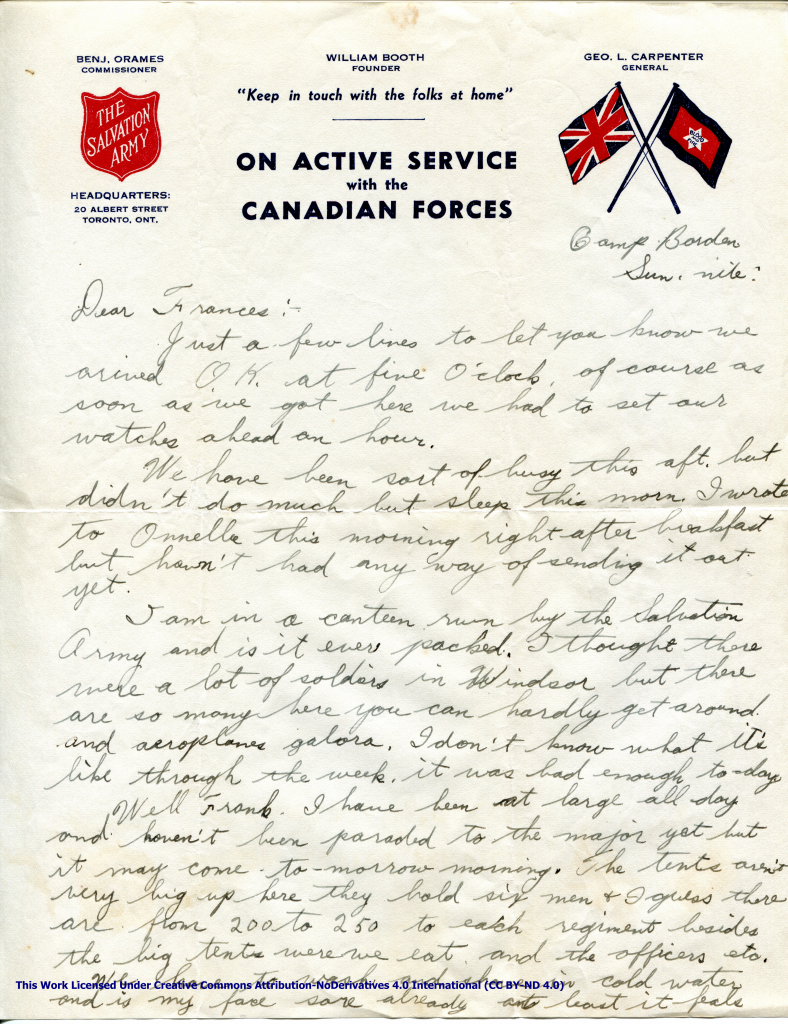 BENJ. ORAMES
COMMISSIONER
THE
SALVATION
ARMY
HEADQUARTERS:
20 ALBERT STREET
TORONTO, ONT.
WILLIAM BOOTH
FOUNDER
"Keep in touch with the folks at home"
ON ACTIVE SERVICE
with the
CANADIAN FORCES
GEO. L. CARPENTER
GENERAL
BLOOD
AND
FIRE
Camp Borden
Sun. nite:
Dear Frances:-
Just a few lines to let you know we
arived O.K. at five O'clock, of course as
soon as we got here we had to set our
watches ahead an hour.
We have been sort of busy this aft. but
didn't do much but sleep this morn. I wrote
to Onnelle this morning right after breakfast
but haven't had any way of sending it out
yet.
I am in a canteen run by the Salvation
Army and is it ever packed. I thought there
were a lot of soldiers in Windsor but there
are so many here you can hardly get around
and aeroplanes galora. I don't know what it's
like through the week. it was bad enough to-day
Well Frank. I have been at large all day
and haven't been paraded to the major yet but
it may come to-morrow morning. The tents aren't
very big up here they hold six men & I guess there
are from 200 to 250 to each regiment besides
the big tents were we eat and the officers etc.
We have to wash and shave in cold water
and is my face sore already at least it feels
This Work Licensed Under Creative Commons Attribution-NoDerivatives 4.0 International (CC BY-ND 4.0)